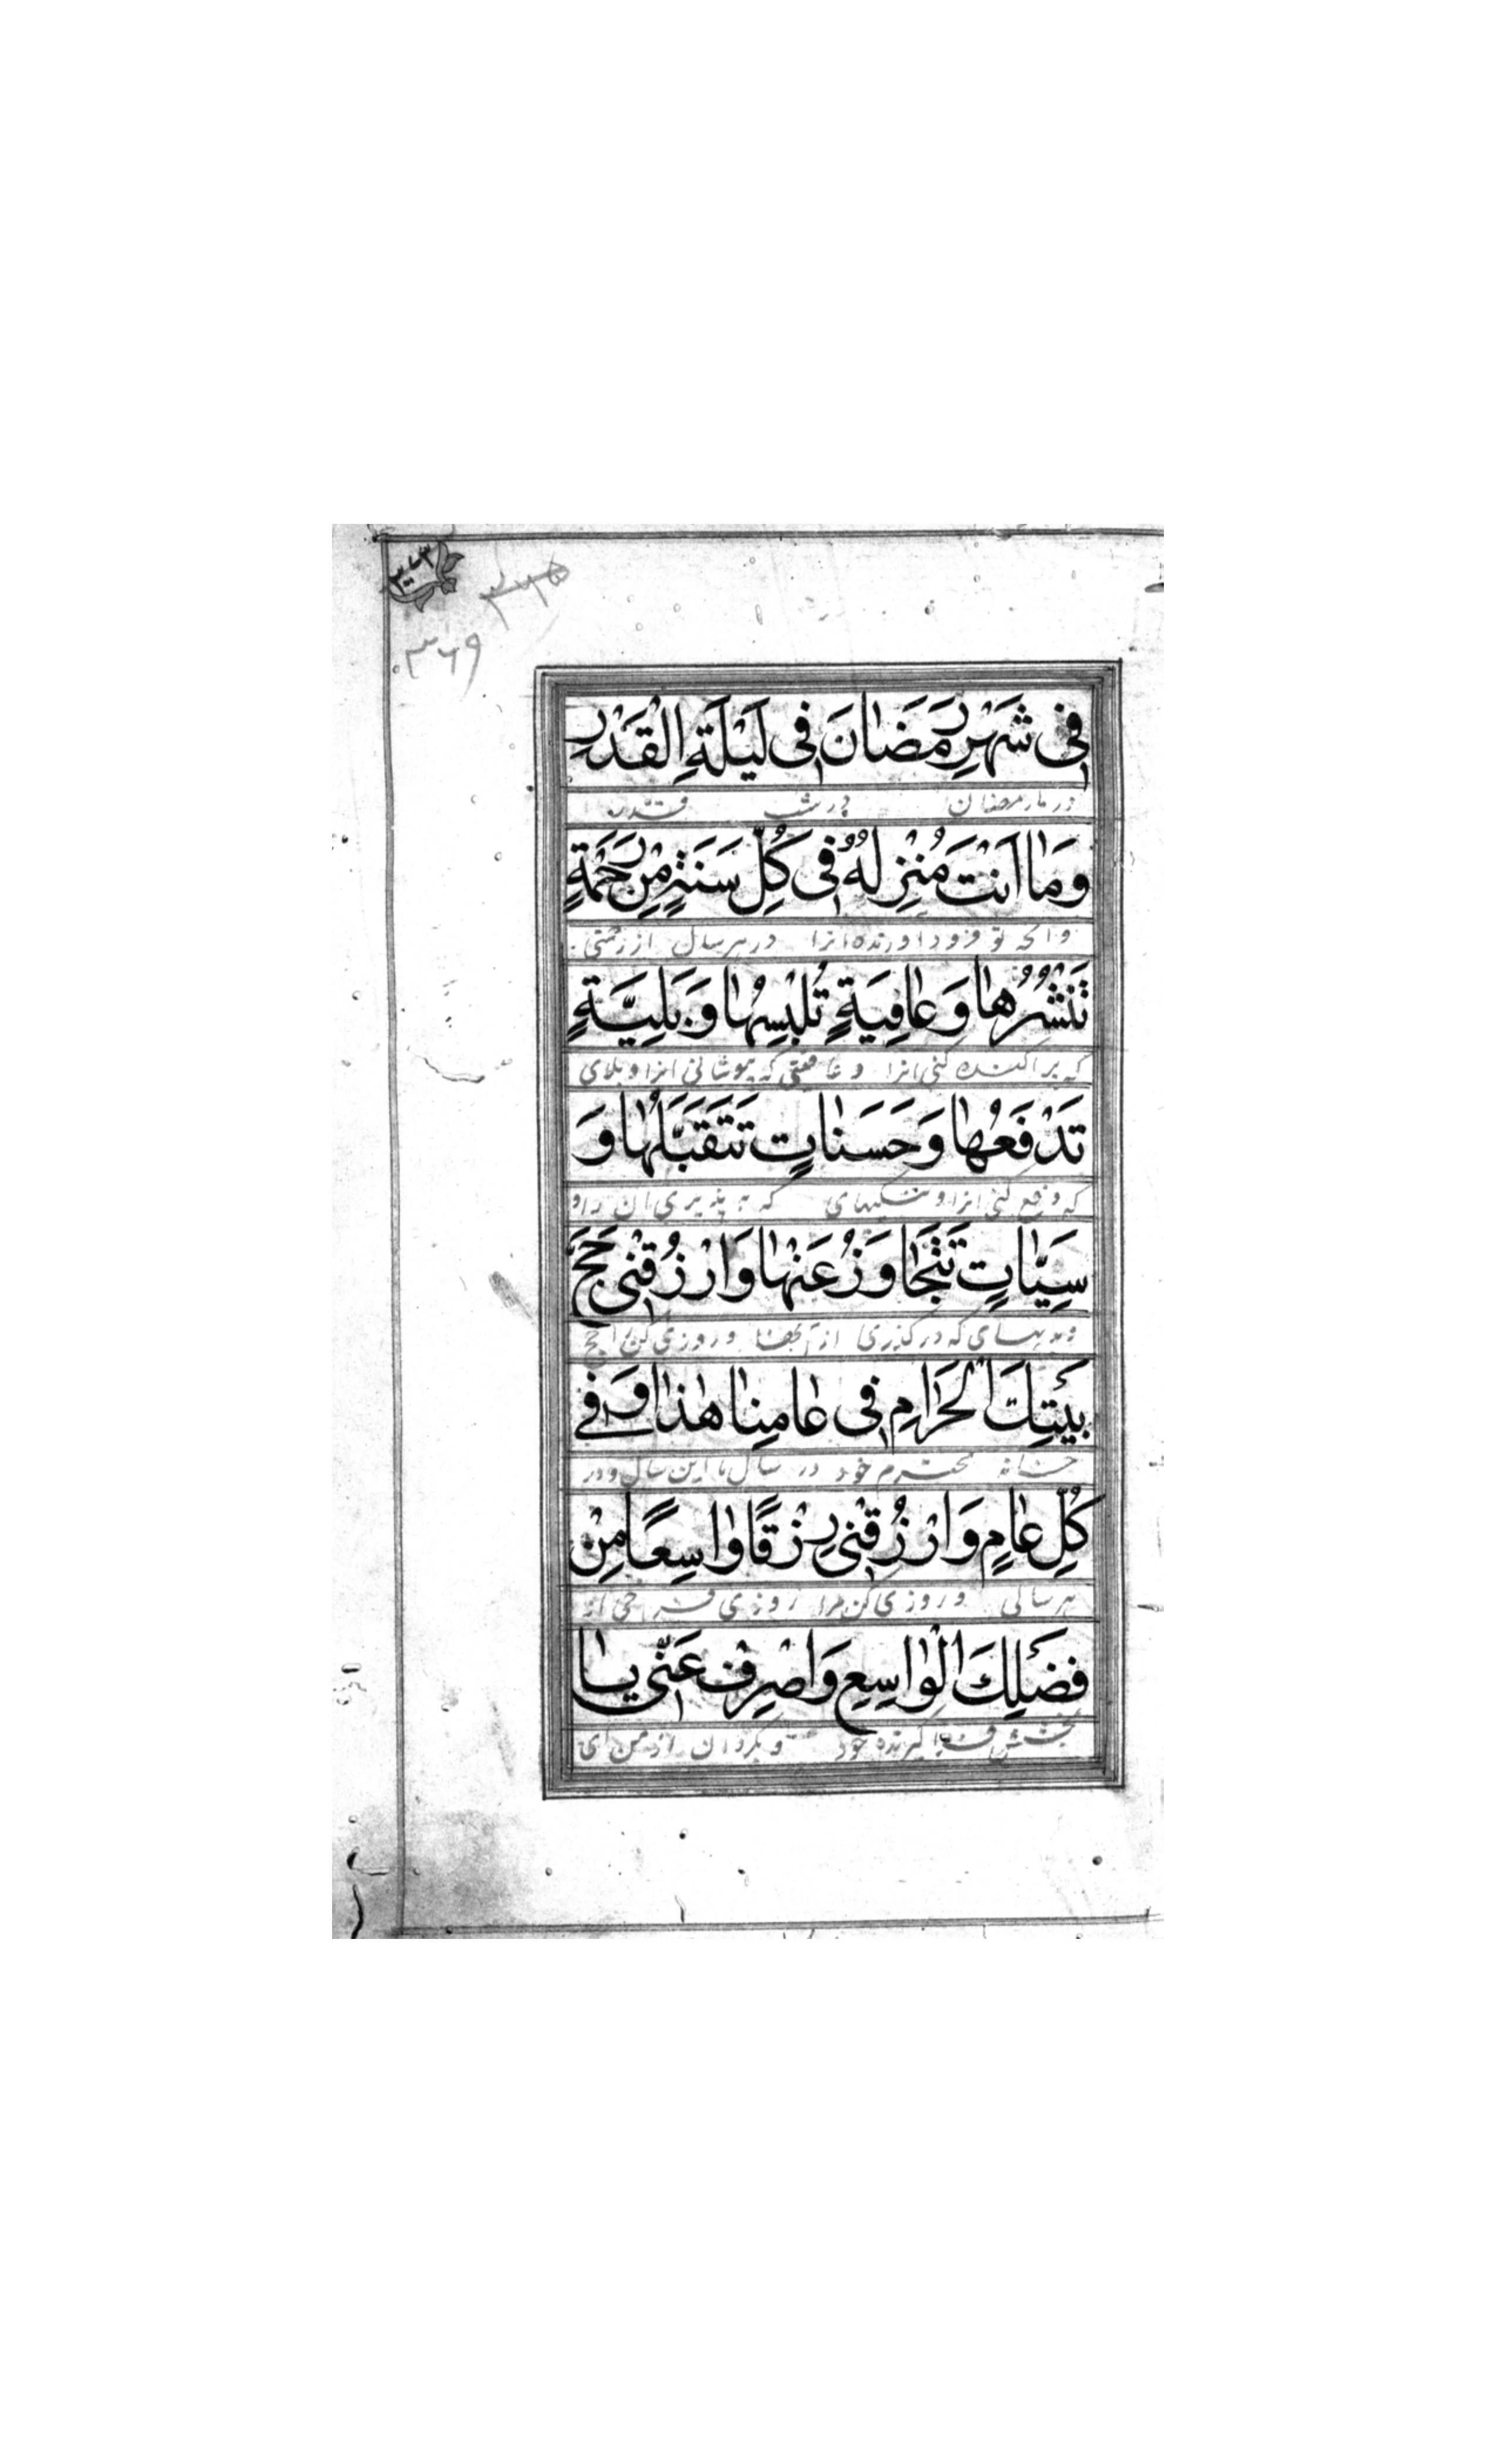 ۳۷۳
۳۶۹
فِی شَهْرِ رَمَضٰانَ فِی لَیْلَةِ الْقَدْرِ
در ماه رمضان در شب قدر
وَمٰا اَنْتَ مُنْزِلُهُ فِی کُلِّ سَنَةٍ مِنْ رَحْمَةٍ
و آنچه تو فرود آورنده انرا در هر سال از رحمتی
تَنْشُرُهٰا وَ عٰافِیَةٍ تُلْبِسُهٰا وَ بَلِیَّةٍ
که پراکنده کنی انرا و عافیتی که بپوشانی انرا و بلای
تَدْفَعُهٰا وَ حَسَنٰاتٍ تَتَقَبَّلُهٰا وَ
که دفع کنی انرا و نیکیهای که بپذیری ان را و
سَیِّئٰاتٍ تَتَجٰاوَزُ عَنْهٰا وَ ارْزُقْنِی حَجَّ
و بدیهای که در گذری از آنها و روزی کن مرا حج
بَیْتِكَ الْحَرٰامِ فِی عٰامِنٰا هٰذٰا وَ فِے
خانه محترم خود در سال ما این سال و در
کُلِّ عٰامٍ وَ ارْزُقْنِی رِزْقًا وٰاسِعًا مِنْ
هر سالی و روزی کن مرا روزی فراخی از
فَضْلِكَ الْوٰاسِعِ وَ اصْرِفْ عَنِّی یٰا
بخشش فرا گیرنده خود و بگردان از من ای